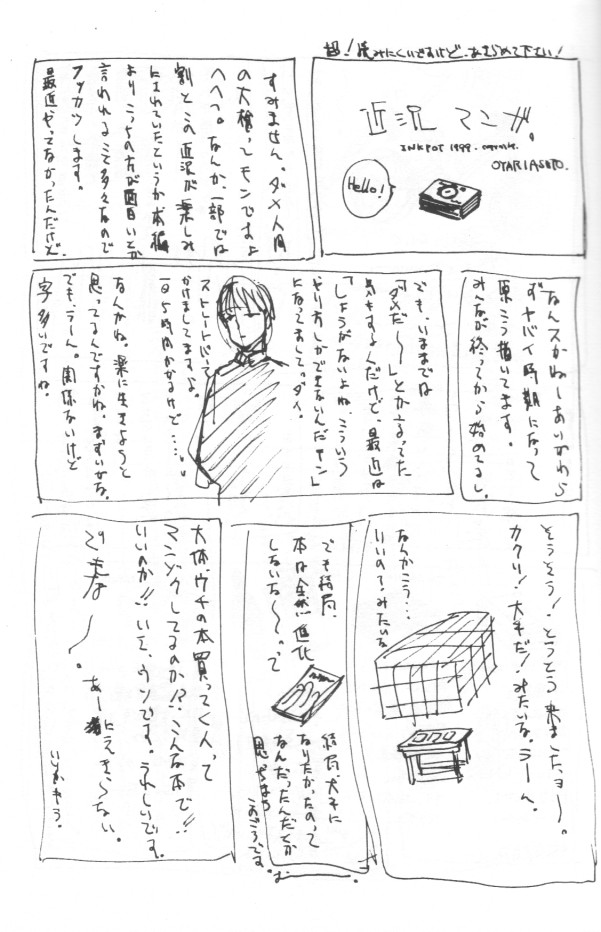 超！読みにくいですけど、あきらめて下さい！
近況マンガ。
INKPOT 1999.
OYARIASHITO.
Hello!
すみません。ダメ人間
の大槍ってモンですよ
へへっ。なんか、一部では
割とこの近況が楽しみ
にされていたというか本編
よりこっちの方が面白いとか
言われるコト多々なので
フッカツします。
最近やってなかったんだけど
なんスかねーあいかわら
ずヤバイ時期になって
原こう描いてます。
みんなが終ってから始めてるし。
でも、いままでは
「ダメだ〜」とか言ってた
気もするんだけど、最近は
「しょうがないよね、こういう
やり方しかできないんだモン」
になってまして。ダイ。
ストレートパーマ
かけましてますよ。
一日5時間かかるけど……。
なんかね。楽に生きようと
思ってるんですかね。まずいかな。
でも、うーん。関係ないけど
字多いですね。
そうそう！とうとう来ましたョ〜。
カクリ！大手だ！みたいな。うーん。
なんかこう…
いいのて！みたいな
でも結局、
本は全然進化
しないな〜って
結局、大手に
なりたかったのって
なんだったんだとか
思っちゃう
このごろです。
大体、ウチの本買ってく人って
マンゾクしてるのか!?こんな本で!!
いいのか!!いえ、ウンです。うれしいです。
でもな〜。